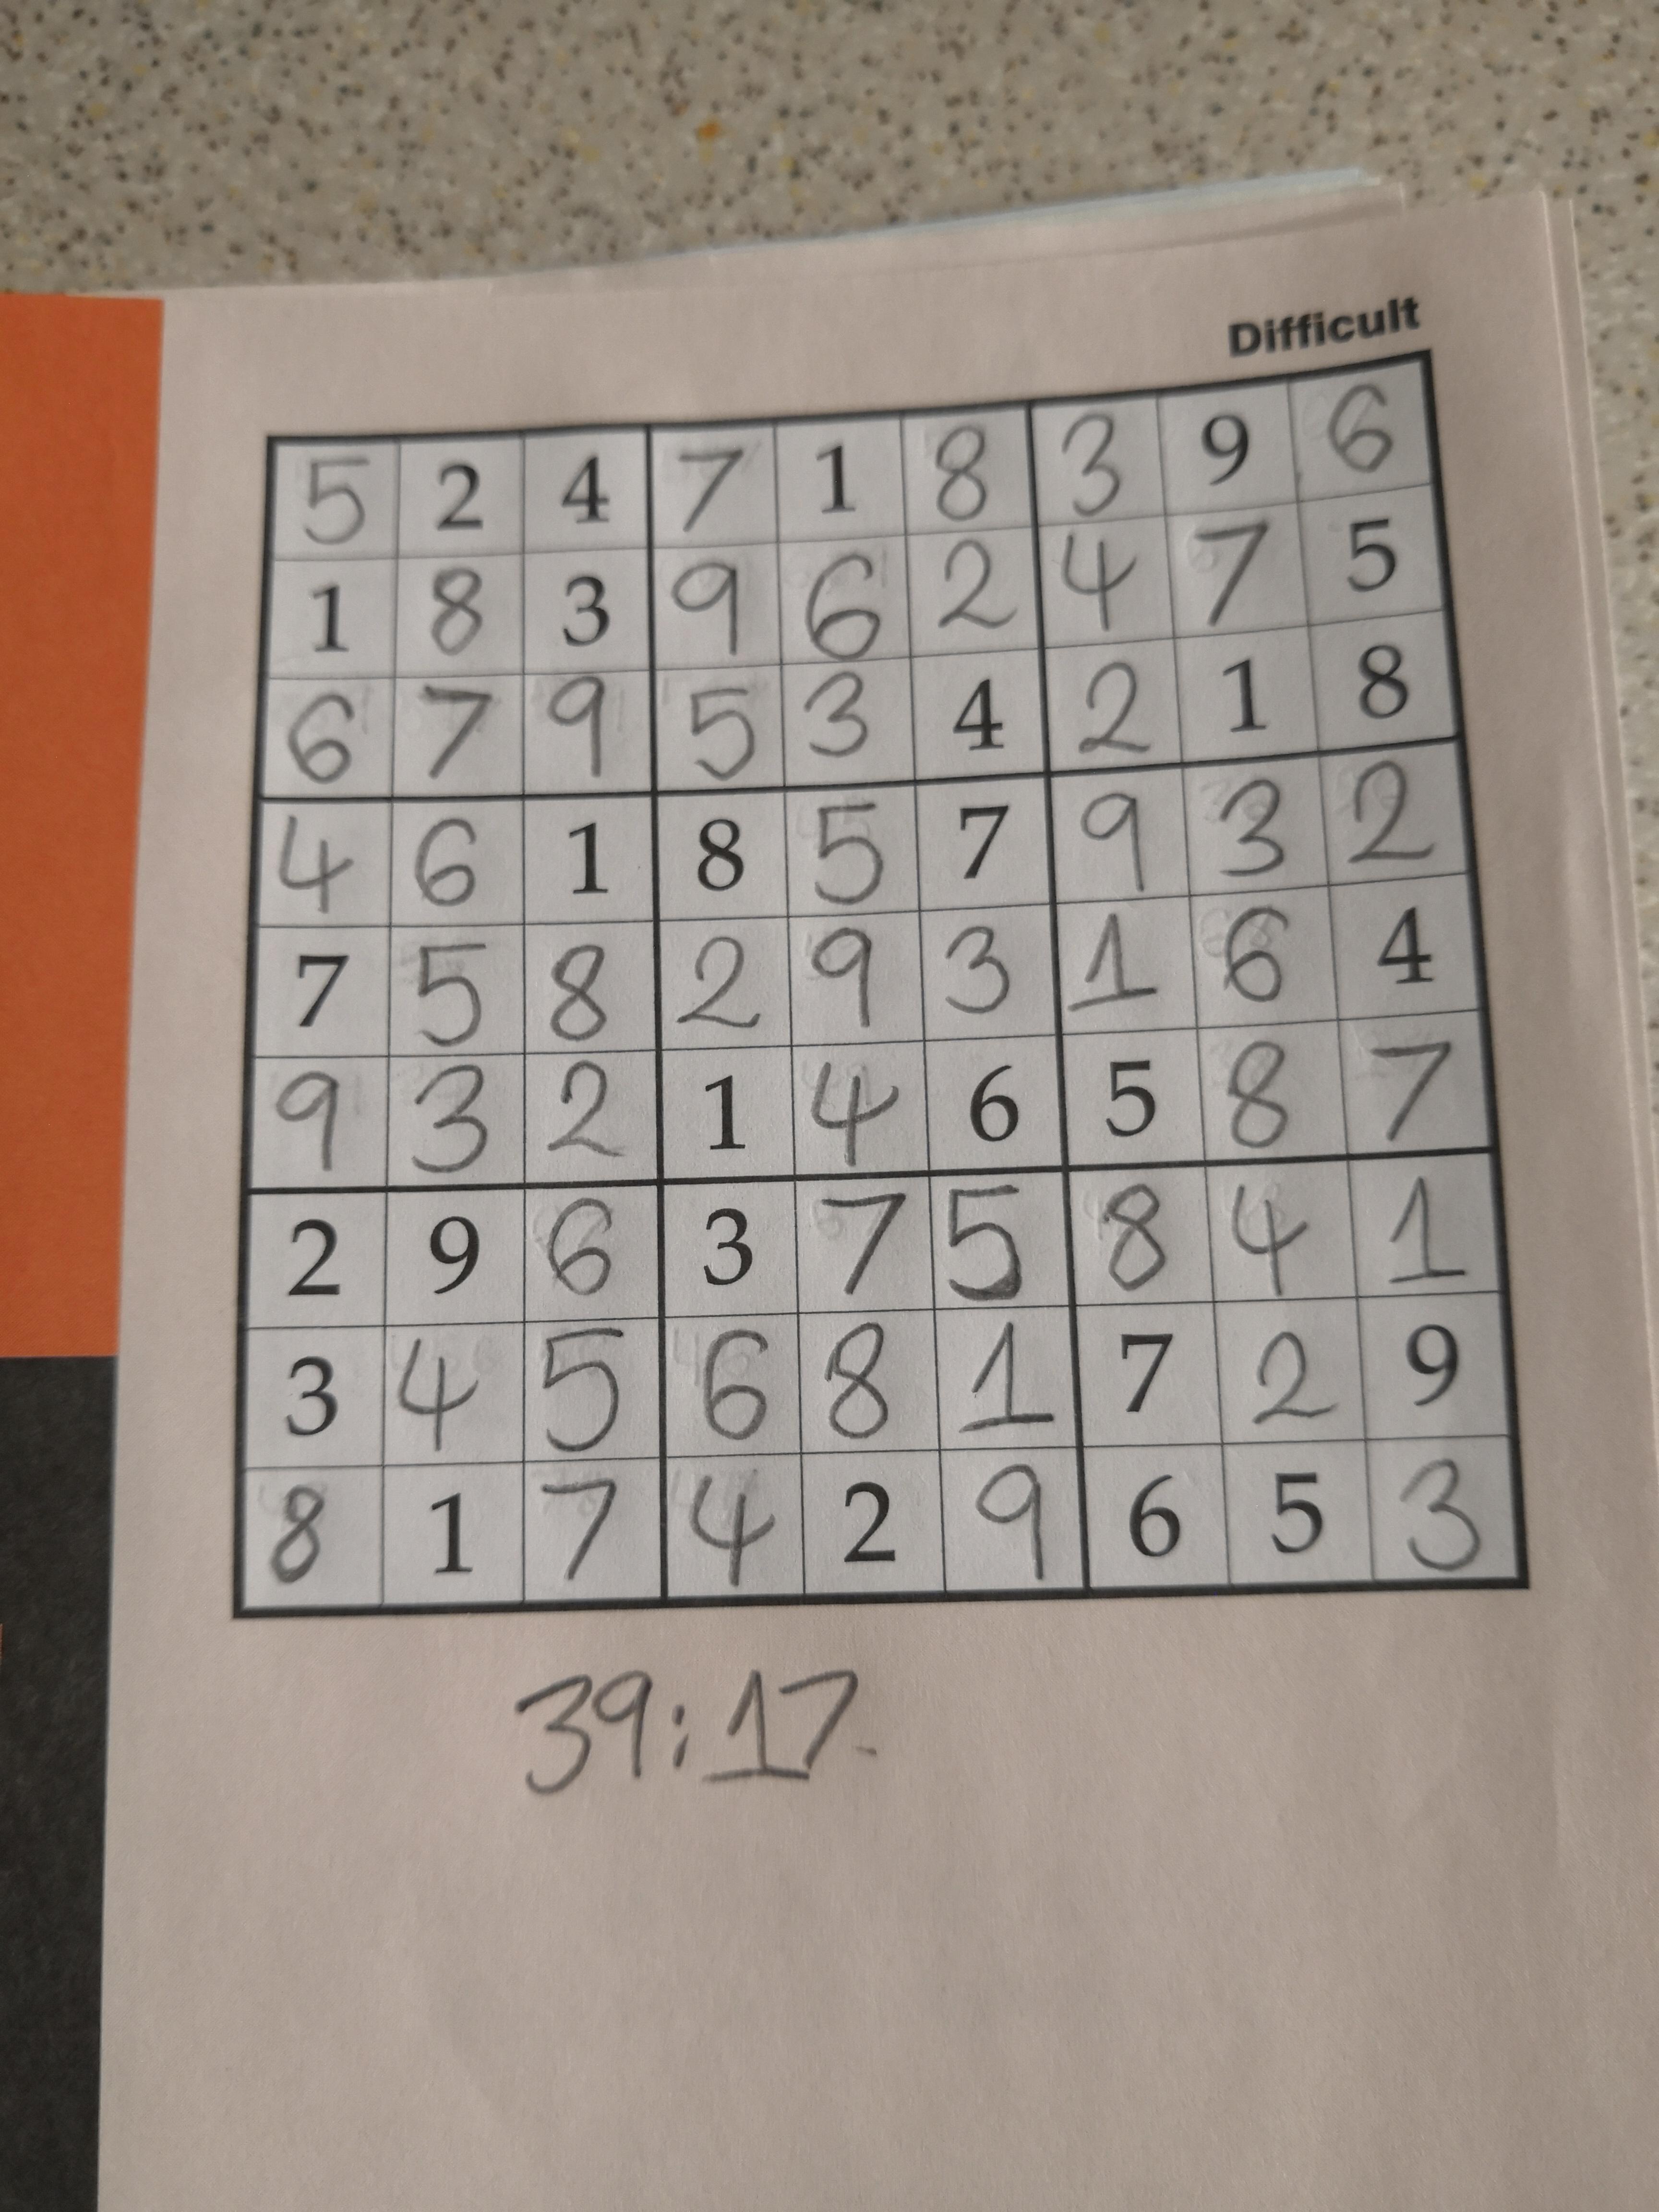 Difficult
5 2 4 7 1 8 3 9 6
1 8 3 9 6 2 4 7 5
6 7 9 5 3 4 2 1 8
4 6 1 8 5 7 9 3 2
7 5 8 2 9 3 1 6 4
9 3 2 1 4 6 5 8 7
2 9 6 3 7 5 8 4 1
3 4 5 6 8 1 7 2 9
8 1 7 4 2 9 6 5 3
39:17.